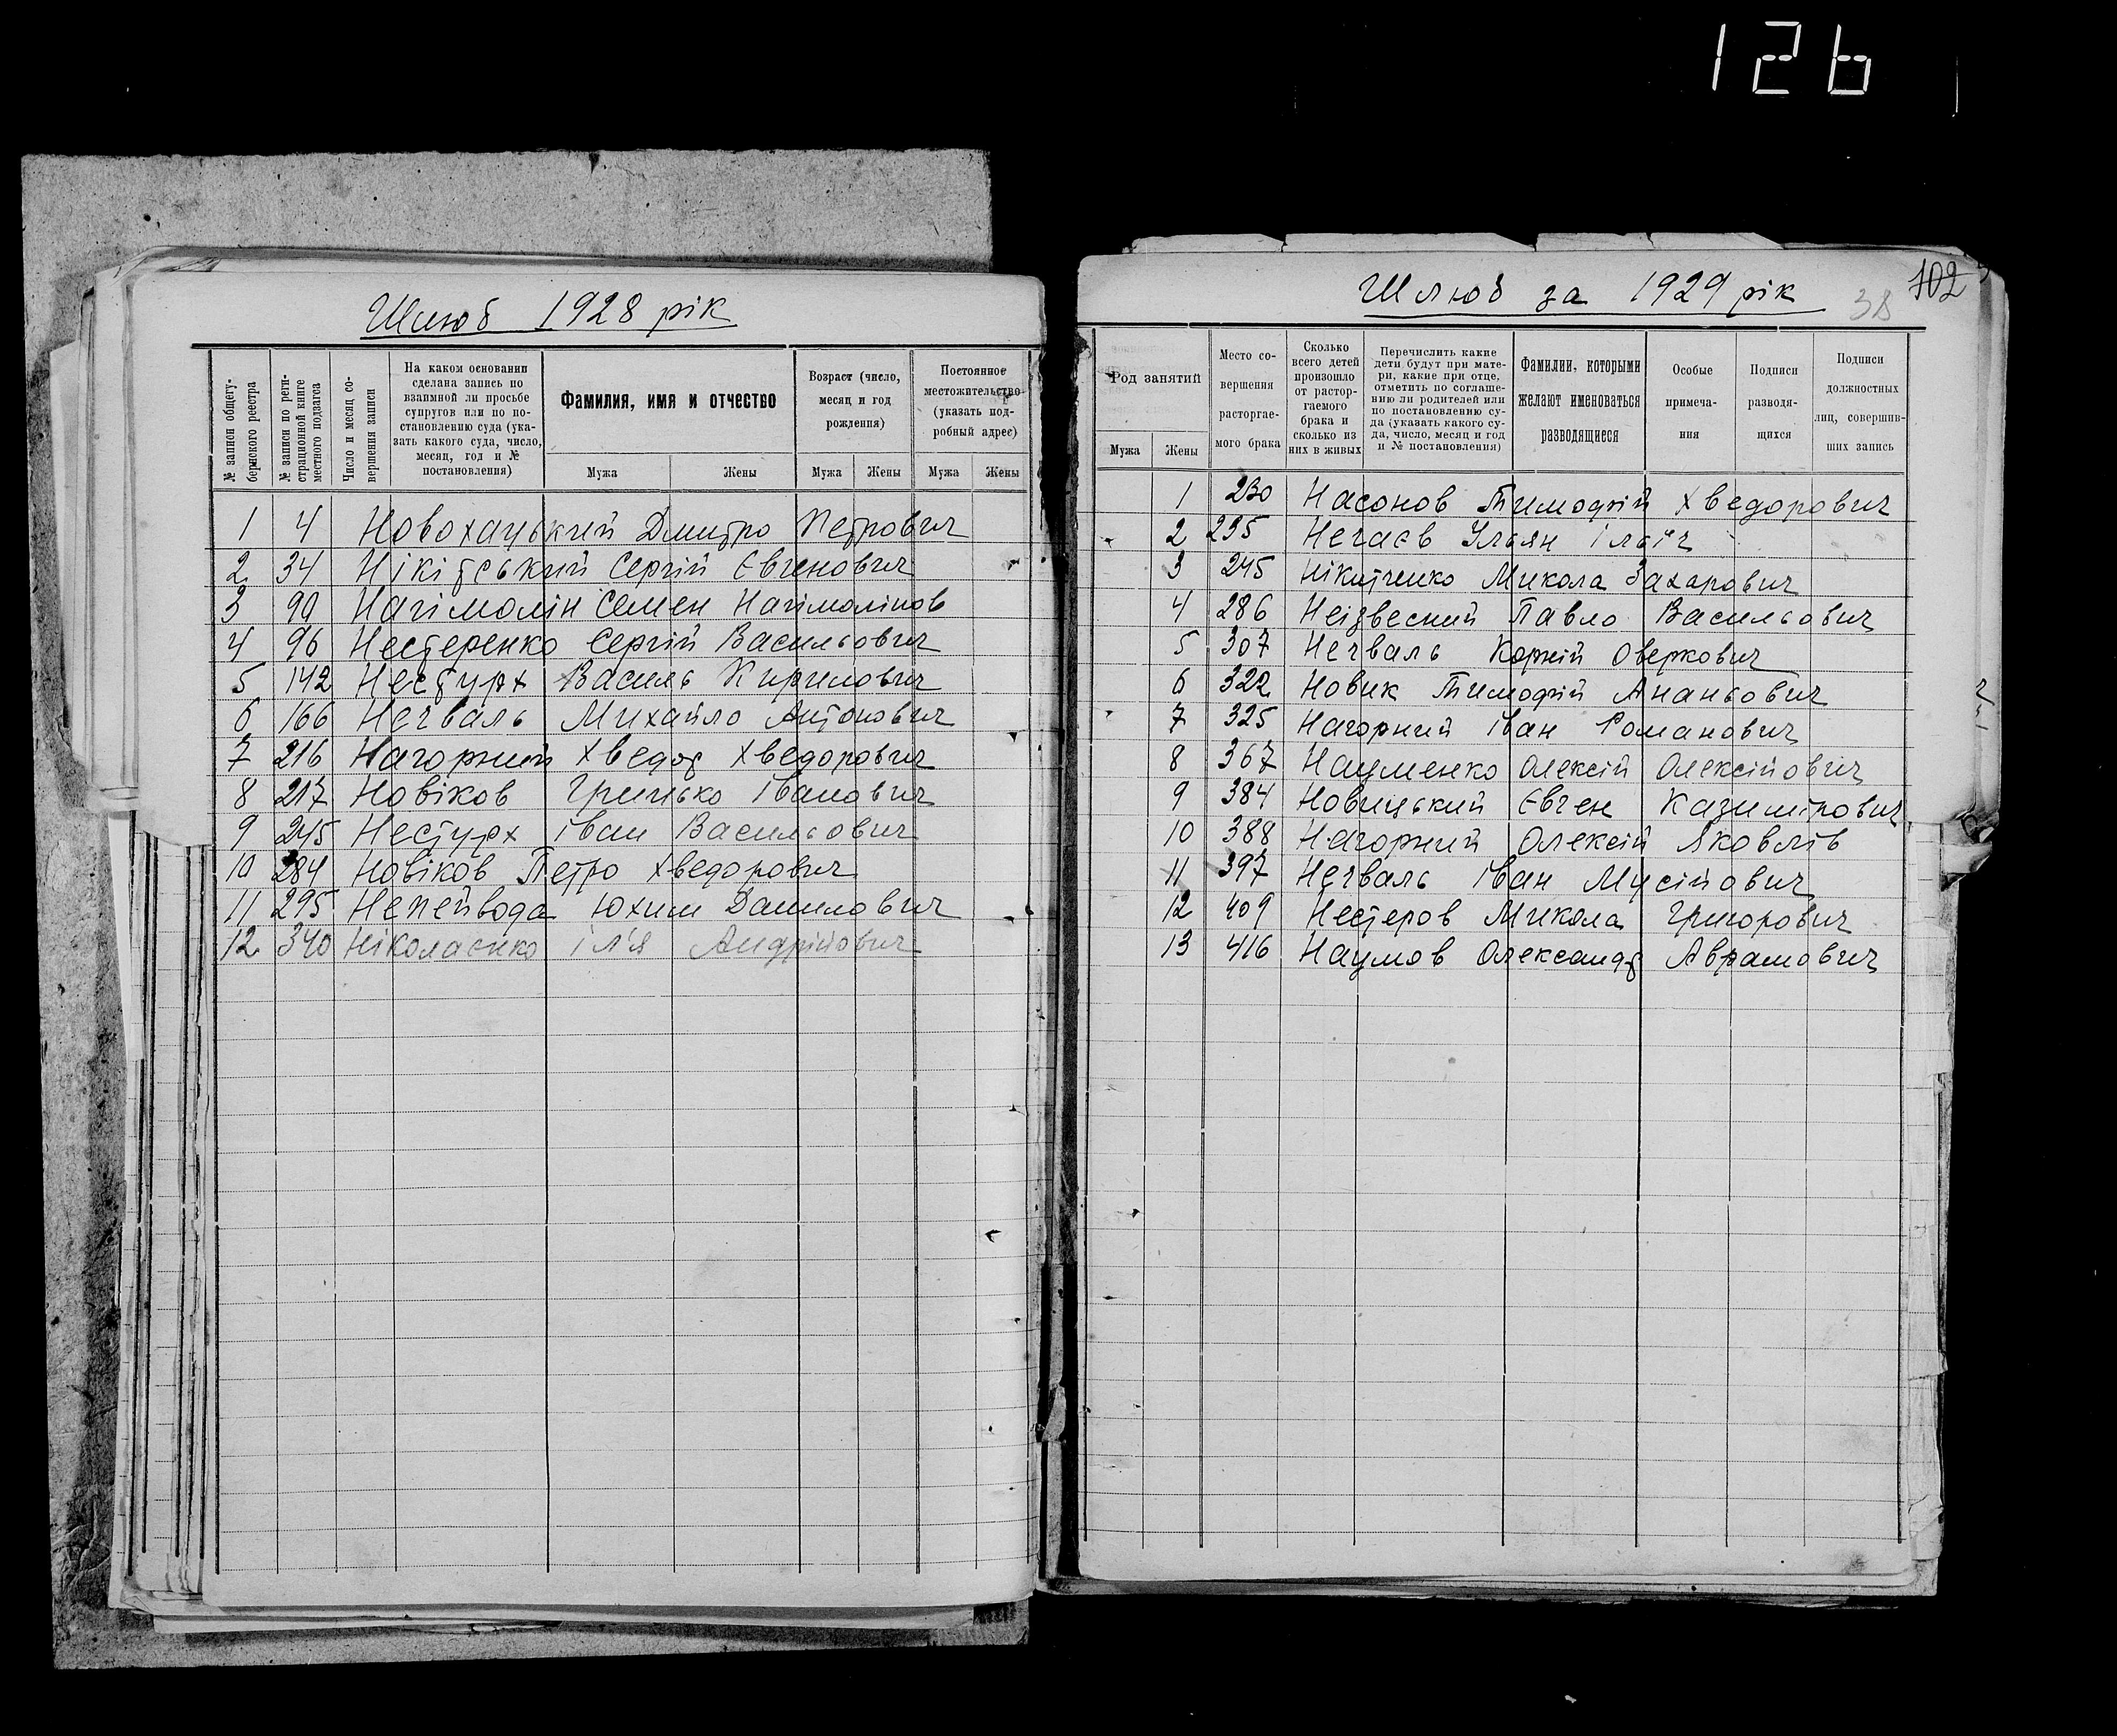 126
Шлюб 1928 рік
№ записи общегу-
бернского реестра
№ записи по реги-
страционной книге
местного подзагса
Число и месяц со-
вершения записи
На каком основании
сделана запись по
взаимной ли просьбе
супругов или по по-
становлению суда (ука-
зать какого суда, число,
месяц, год и №
постановления)
Фамилия, имя и отчество
Мужа Жены
Возраст (число,
месяц и год
рождения)
Мужа Жены
Постоянное
местожительство
(указать под-
робный адрес)
Мужа Жены
1 4 Новохацький Дмитро Петрович
2 34 Нікітський Сергій Євгенович
3 90 Нагімолін Семен Нагімолінов
4 96 Нестеренко Сергій Васильович
5 142 Нестурх Василь Кирилович
6 166 Нечваль Михайло Антонович
7 216 Нагорний Хведор Хведорович
8 217 Новіков Грицько Іванович
9 245 Нестурх Іван Васильович
10 284 Новіков Петро Хведорович
11 295 Непейвода Юхим Данилович
12 340 Ніколаєнко Ілья Андрійович
Шлюб за 1929 рік
102
38
Род занятий
Мужа Жены
Место со-
вершения
расторгае-
мого брака
Сколько
всего детей
произошло
от растор-
гаемого
брака и
сколько из
них в живых
Перечислить какие
дети будут при мате-
ри, какие при отце,
отметить по соглаше-
нию ли родителей или
по постановлению су-
да (указать какого су-
да, число, месяц и год
и № постановления)
Фамилии, которыми
желают именоваться
разводящиеся
Особые
примеча-
ния
Подписи
разводя-
щихся
Подписи
должностных
лиц, совершив-
ших запись
1 230 Насонов Тимофій Хведорович
2 235 Негаєв Ульян Ільїч
3 245 Нікітченко Микола Захарович
4 286 Неізвесний Павло Васильович
5 307 Нечваль Корній Оверкович
6 322 Новик Тимофій Ананьович
7 325 Нагорний Іван Романович
8 367 Науменко Олексій Олексійович
9 384 Новицький Євген Казимірович
10 388 Нагорний Олексій Яковлів
11 397 Нечваль Іван Мусійович
12 409 Нестеров Микола Григорович
13 416 Наумов Олександр Аврамович